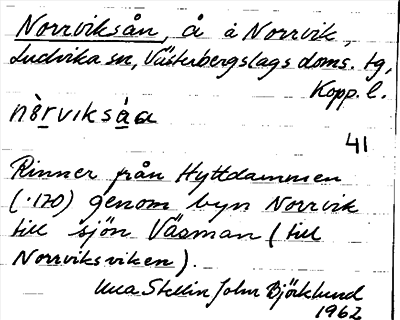 Norrviksån, å å Norrvik,
Ludvika sn, Västerbergslags doms. tg,
Kopp. l.
nòrviksá̱a
41
Rinner från Hyttdammen
(.170) genom byn Norrvik
till sjön Väsman (till
Norrviksviken).
Stellin John Björklund
1962